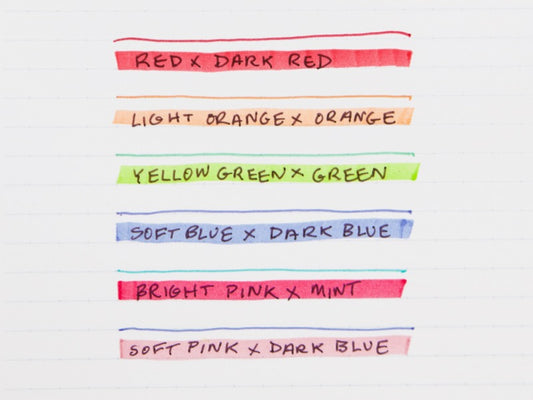 RED X DARK RED
LIGHT ORANGE X ORANGE
YELLOW GREEN X GREEN
SOFT BLUE X DARK BLUE
BRIGHT PINK X MINT
SOFT PINK X DARK BLUE